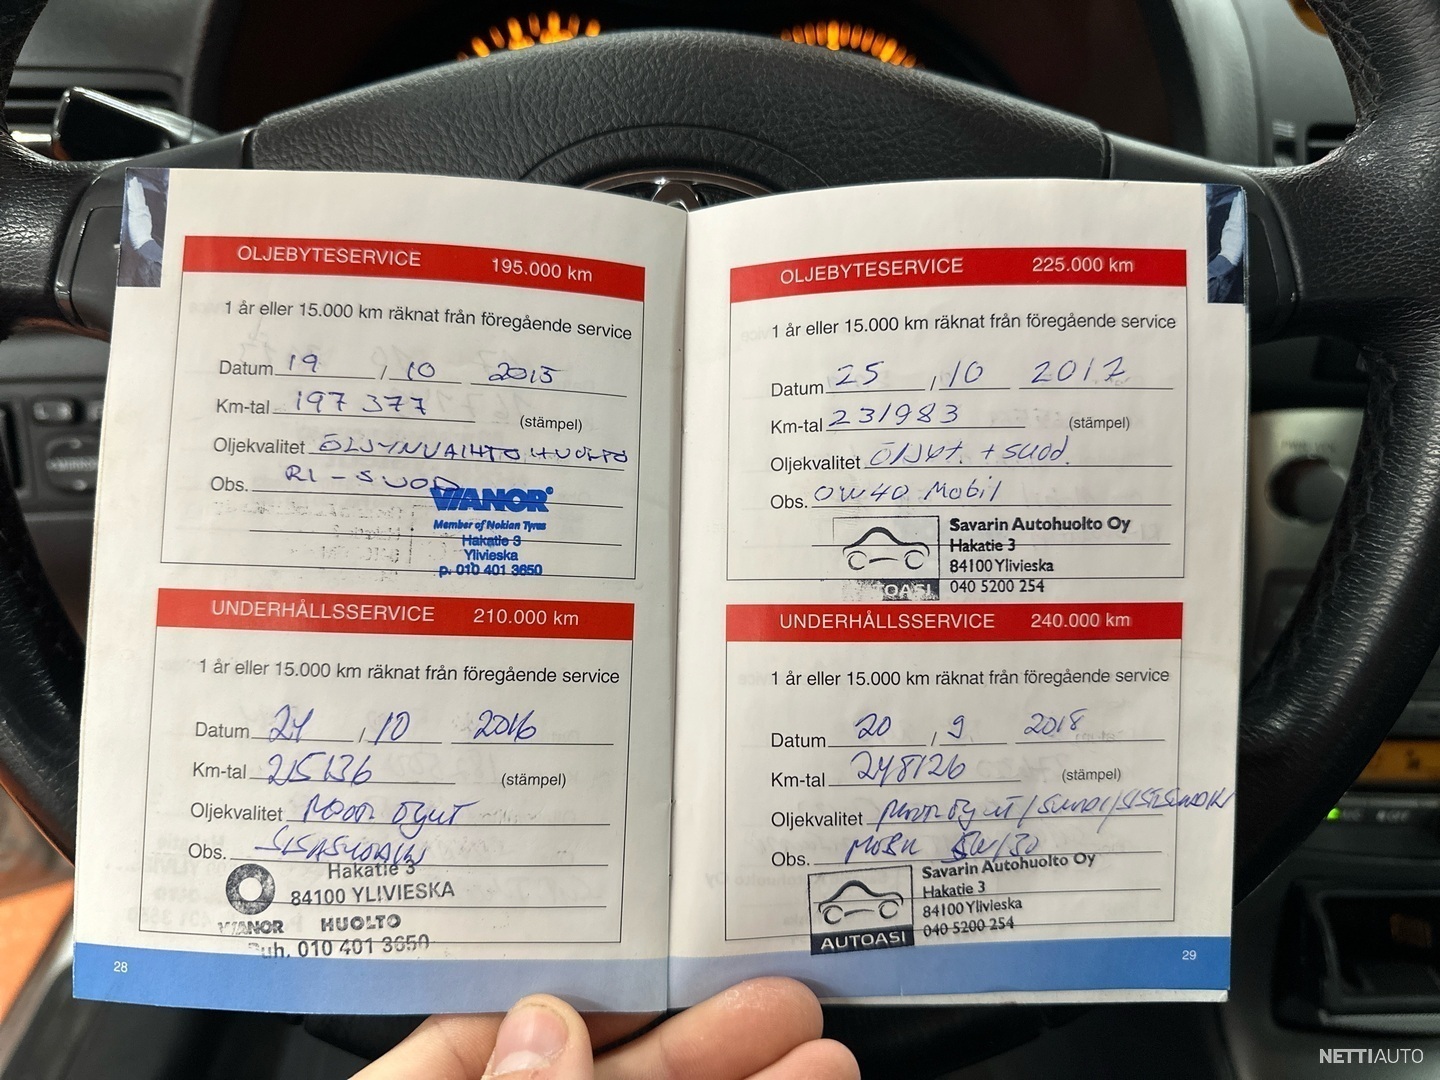 OLJEBYTESERVICE 195.000 km
1 år eller 15.000 km räknat från föregående service
Datum 19 / 10 2015
Km-tal 197 377 (stämpel)
Oljekvalitet ÖLJYNVAIHTO HUOLTO
Obs. RI - SUOD
VIANOR
Member of Nokian Tyres
Hakatie 3
Ylivieska
p. 010 401 3650
UNDERHÅLLSSERVICE 210.000 km
1 år eller 15.000 km räknat från föregående service
Datum 24 / 10 2016
Km-tal 215136 (stämpel)
Oljekvalitet Moot. öljyt
Obs. SISÄSUODATIN
Hakatie 3
84100 YLIVIESKA
VIANOR HUOLTO
Puh. 010 401 3650
28
OLJEBYTESERVICE 225.000 km
1 år eller 15.000 km räknat från föregående service
Datum 25 / 10 2017
Km-tal 231983 (stämpel)
Oljekvalitet Öljyt. + suod.
Obs. 0W40 Mobil
Savarin Autohuolto Oy
Hakatie 3
84100 Ylivieska
040 5200 254
TOASI
UNDERHÅLLSSERVICE 240.000 km
1 år eller 15.000 km räknat från föregående service
Datum 20 / 9. 2018
Km-tal 248126 (stämpel)
Oljekvalitet
Obs. 5W/30
Savarin Autohuolto Oy
Hakatie 3
84100 Ylivieska
040 5200 254
AUTOASI
29
NETTIAUTO